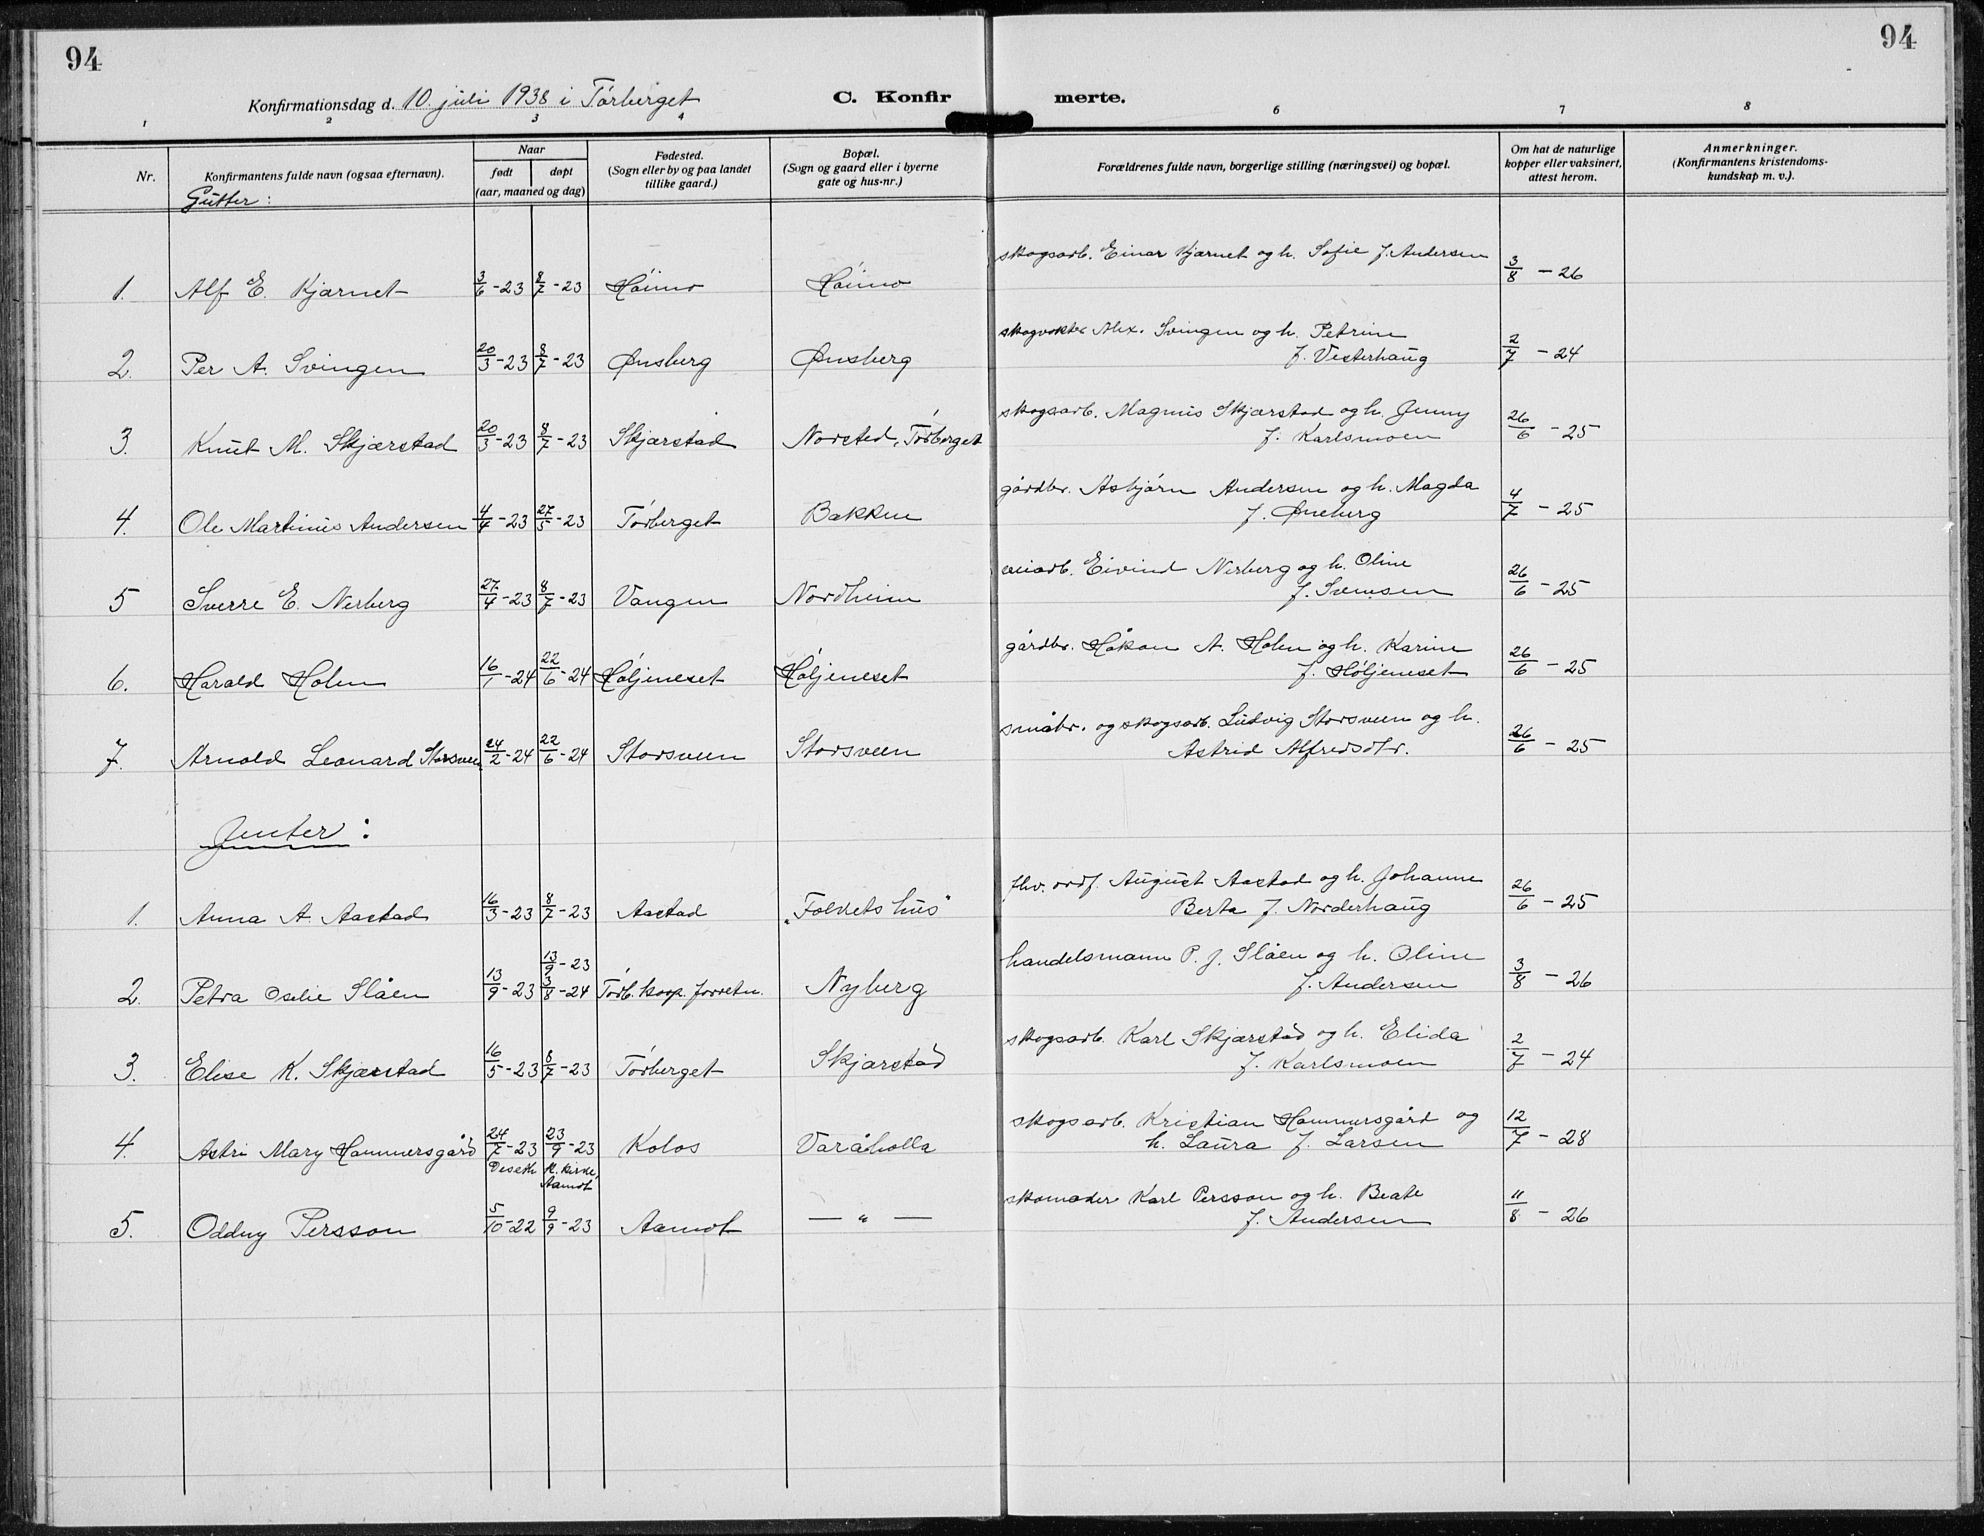 94
94
Konfirmationsdag d. 10. juli 1938 i Tørberget
C. Konfir merte.
1 2 3 4 6 7 8
Nr.
Konfirmantens fulde navn (ogsaa efternavn).
Naar
født døpt
(aar, maaned og dag)
Fødested.
(Sogn eller by og paa landet
tillike gaard.)
Bopæl.
(Sogn og gaard eller i byerne
gate og hus-nr.)
Forældrenes fulde navn, borgerlige stilling (næringsvei) og bopæl.
Om hat de naturlige
kopper eller vaksinert,
attest herom.
Anmerkninger.
(Konfirmantens kristendoms-
kundskap m. v.).
Gutter:
skogsarb. Einar Kjærnet og h. Sofie f. Andersen
1. Alf E. Kjærnet 3/6-23 8/7-23 Høimo Høimo 3/8 - 26
skogvokter Alex. Svingen og h. Petrine
2. Per A. Svingen 20/3-23 8/7-23 Ønsberg Ønsberg f. Vesterhaug 2/7 - 24
skogsarb. Magnus Skjærstad og h. Jenny
3. Knut M. Skjærstad 20/3-23 8/7-23 Skjærstad Norsted, Tørberget f. Karlsmoen 26/6 - 25
gårdbr. Asbjørn Andersen og h. Magda
4. Ole Martinus Andersen 4/4-23 27/5-23 Tørberget Bakken f. Øneberg 4/7 - 25
veiarb. Eivind Nerberg og h. Oline
5 Sverre E. Nerberg 27/4-23 8/7-23 Vangen Nordheim f. Svensen 26/6 - 25
gårdbr. Håkon A. Holen og h. Karine
6. Harald Holen 16/1-24 22/6-24 Høljeneset Høljeneset f. Høljeneset 26/6 - 25
småbr. og skogsarb. Ludvig Storsveen og h.
7. Arnold Leonard Storsveen 24/2-24 22/6-24 Storsveen Storsveen Astrid Alfredsdtr. 26/6 - 25
Jenter:
fhv. ordf. August Aastad og h. Johanne
1. Anna A. Aastad 16/3-23 8/7-23 Aastad „Folkets hus" Berta f. Norderhaug 26/6 - 25
handelsmann P. J. Slåen og h. Oline
13/9-23
2. Petra Oselie Slåen 13/9-23 3/8-24 Tørb. koop. forretn. Nyberg f. Andersen 3/8 - 26
skogsarb. Karl Skjærstad og h. Elida
3. Elise K. Skjærstad 16/5-23 8/7-23 Tørberget Skjærstad f. Karlsmoen 2/7 - 24
skogsarb. Kristian Hammersgård og
4. Astri Mary Hammersgård 24/7-23 23/9-23 Kolos Varåholla h. Laura f. Larsen 12/7 - 28
Deseth H. kirke,
Aamot
skomaker Karl Persson og h. Beate
5. Oddny Persson 5/10-22 9/9-23 Aamot — " — f. Andersen 11/8 - 26